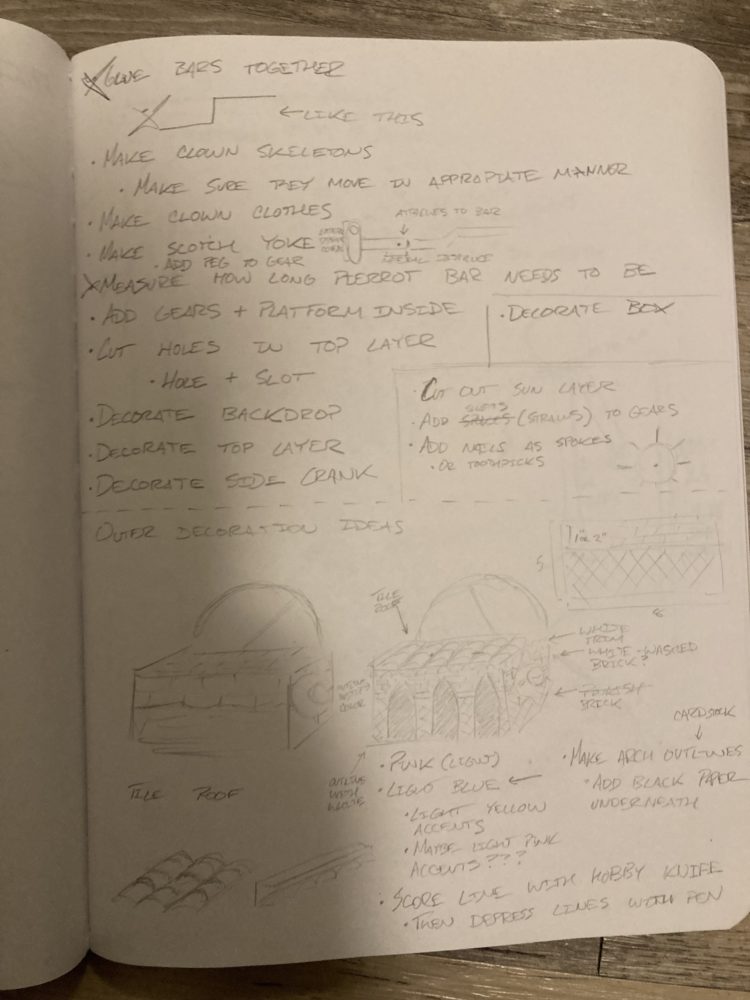 GLUE BARS TOGETHER
←LIKE THIS
• MAKE CLOWN SKELETONS
• MAKE SURE THEY MOVE IN APPROPIATE MANNER
• MAKE CLOWN CLOTHES
ATTACHES TO BAR
• MAKE SCOTCH YOKE
• ADD PEG TO GEAR
MEASURE HOW LONG PIERROT BAR NEEDS TO BE
• ADD GEARS + PLATFORM INSIDE
• CUT HOLES IN TOP LAYER
• HOLE + SLOT
• DECORATE BACKDROP
• DECORATE TOP LAYER
• DECORATE SIDE CRANK
• DECORATE BOX
• CUT OUT SUN LAYER
• ADD (STRAWS) TO GEARS
• ADD NAILS AS SPOKES
• OR TOOTHPICKS
OUTER DECORATION IDEAS
1 OR 2"
5
8
TILE ROOF
WHITE TRIM
WHITE-WASHED BRICK?
BRICK
OUTLINE WITH WHITE
TILE ROOF
• PINK (LIGHT)
• LIGHT BLUE ←
• LIGHT YELLOW
ACCENTS
• MAYBE LIGHT PINK
ACCENTS???
CARDSTOCK
• MAKE ARCH OUTLINES
• ADD BLACK PAPER
UNDERNEATH
• SCORE LINE WITH HOBBY KNIFE
• THEN DEPRESS LINES WITH PEN